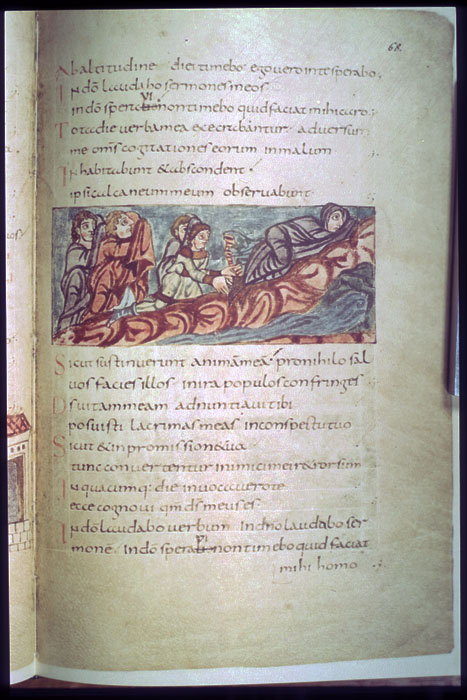 68
Ab altitudine diei timebo ego vero in te sperabo;
In dō laudabo sermones meos
in dō speravi non timebo quid faciat mihi caro;
Tota die verba mea execrabantur adversum
me om̄s cogitationes eorum in malum
Inhabitabunt & abscondent
ipsi calcaneum meum observabunt
Sicut sustinuerunt animā meā pro nihilo sal
vos facies illos in ira populos confringes
Ds vitam meam adnuntiavi tibi
posuisti lacrimas meas in conspectu tuo
Sicut & in promissione tua
tunc convertentur inimici mei retrorsum
In quacumq; die invocavero te
ecce cognovi qm̄ ds meus es
In dō laudabo verbum In dno laudabo ser
monē In dō speravi non timebo quid faciat
mihi homo